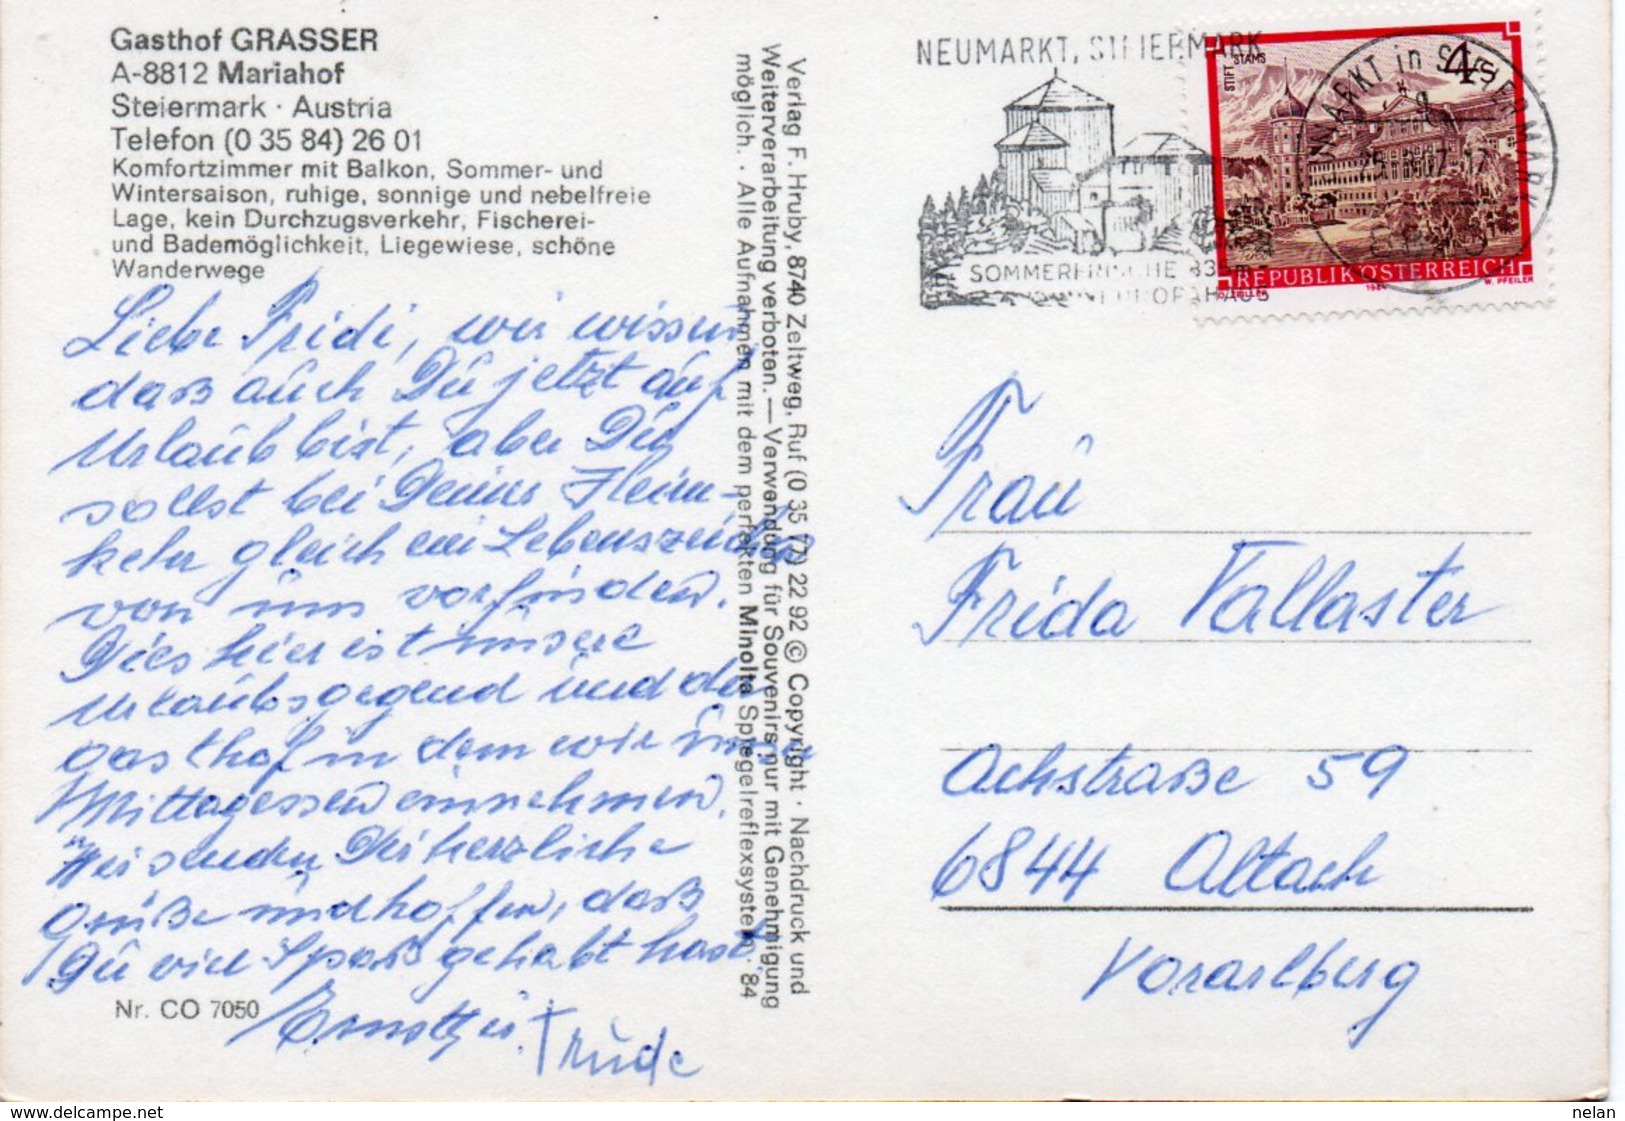 Gasthof GRASSER
A-8812 Mariahof
Steiermark · Austria
Telefon (0 35 84) 26 01
Komfortzimmer mit Balkon, Sommer- und
Wintersaison, ruhige, sonnige und nebelfreie
Lage, kein Durchzugsverkehr, Fischerei-
und Bademöglichkeit, Liegewiese, schöne
Wanderwege
Liebe Fridi, wir wissen,
daß auch Du jetzt auf
Urlaub bist, aber Du
sollst bei Deiner Heim-
kehr gleich ein Lebenszeichen
von uns vorfinden.
Dies hier ist unsere
Urlaubsgegend und der
Gasthof in dem wir unser
Mittagessen einnehmen.
Wir senden Dir herzliche
Grüße und hoffen, daß
Du viel Spaß gehabt hast.
Nr. CO 7050
Trude
Verlag F. Hruby, 8740 Zeltweg, Ruf (0 35 77) 22 92 © Copyright · Nachdruck und
Weiterverarbeitung verboten. — Verwendung für Souvenirs nur mit Genehmigung
möglich. · Alle Aufnahmen mit dem perfekten Minolta Spiegelreflexsystem · 84
NEUMARKT, STEIERMARK
SOMMERFRISCHE
EUROPAHAUS
MARKT in STEIERMARK
STIFT STAMS
4
S
REPUBLIK ÖSTERREICH
O. ZEILLER 1984 W. PFEILER
Frau
Frida Vallaster
Achstraße 59
6844 Altach
Vorarlberg
www.delcampe.net
nelan